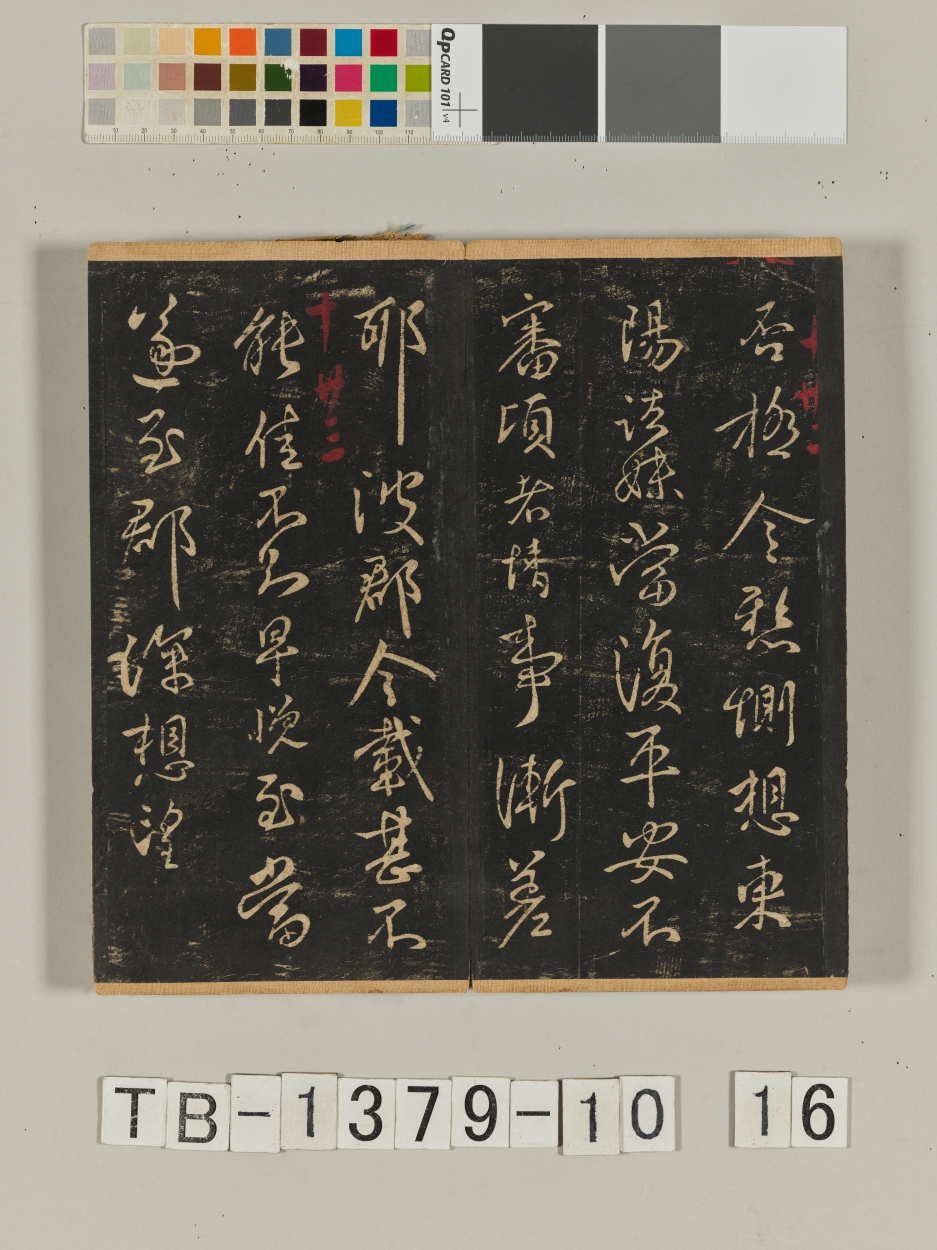 QPCARD 101 v4
10 20 30 40 50 60 70 80 90 100 110
否極令愁惻想東
陽諸妹當復平安不
審頃者情事漸差
耶彼郡今載甚不
十 卅二
能佳不知早晚至當
遂至郡深想望
TB-1379-10 16